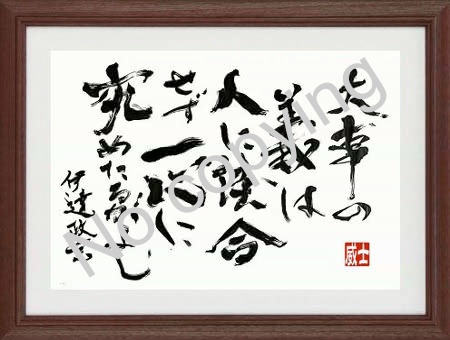 大事の
義は
人に談合
せず一心に
究めたるがよし
伊達政宗
威士
No copying